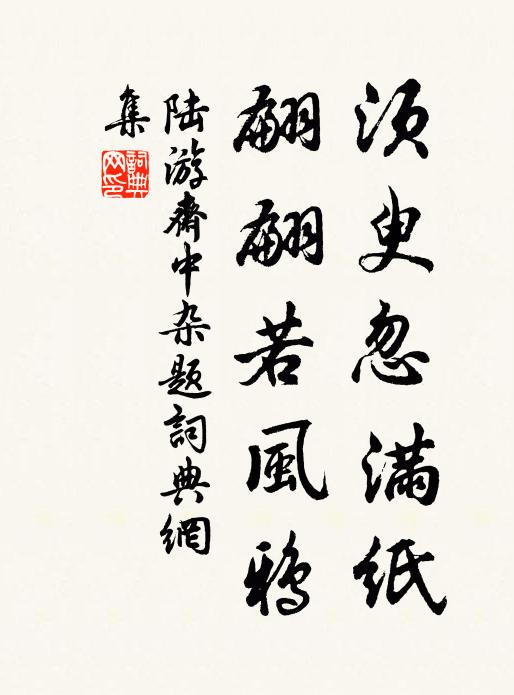 須臾忽滿紙
翩翩若風鴉
陆游齋中杂題詞典網
集
詞典
网印